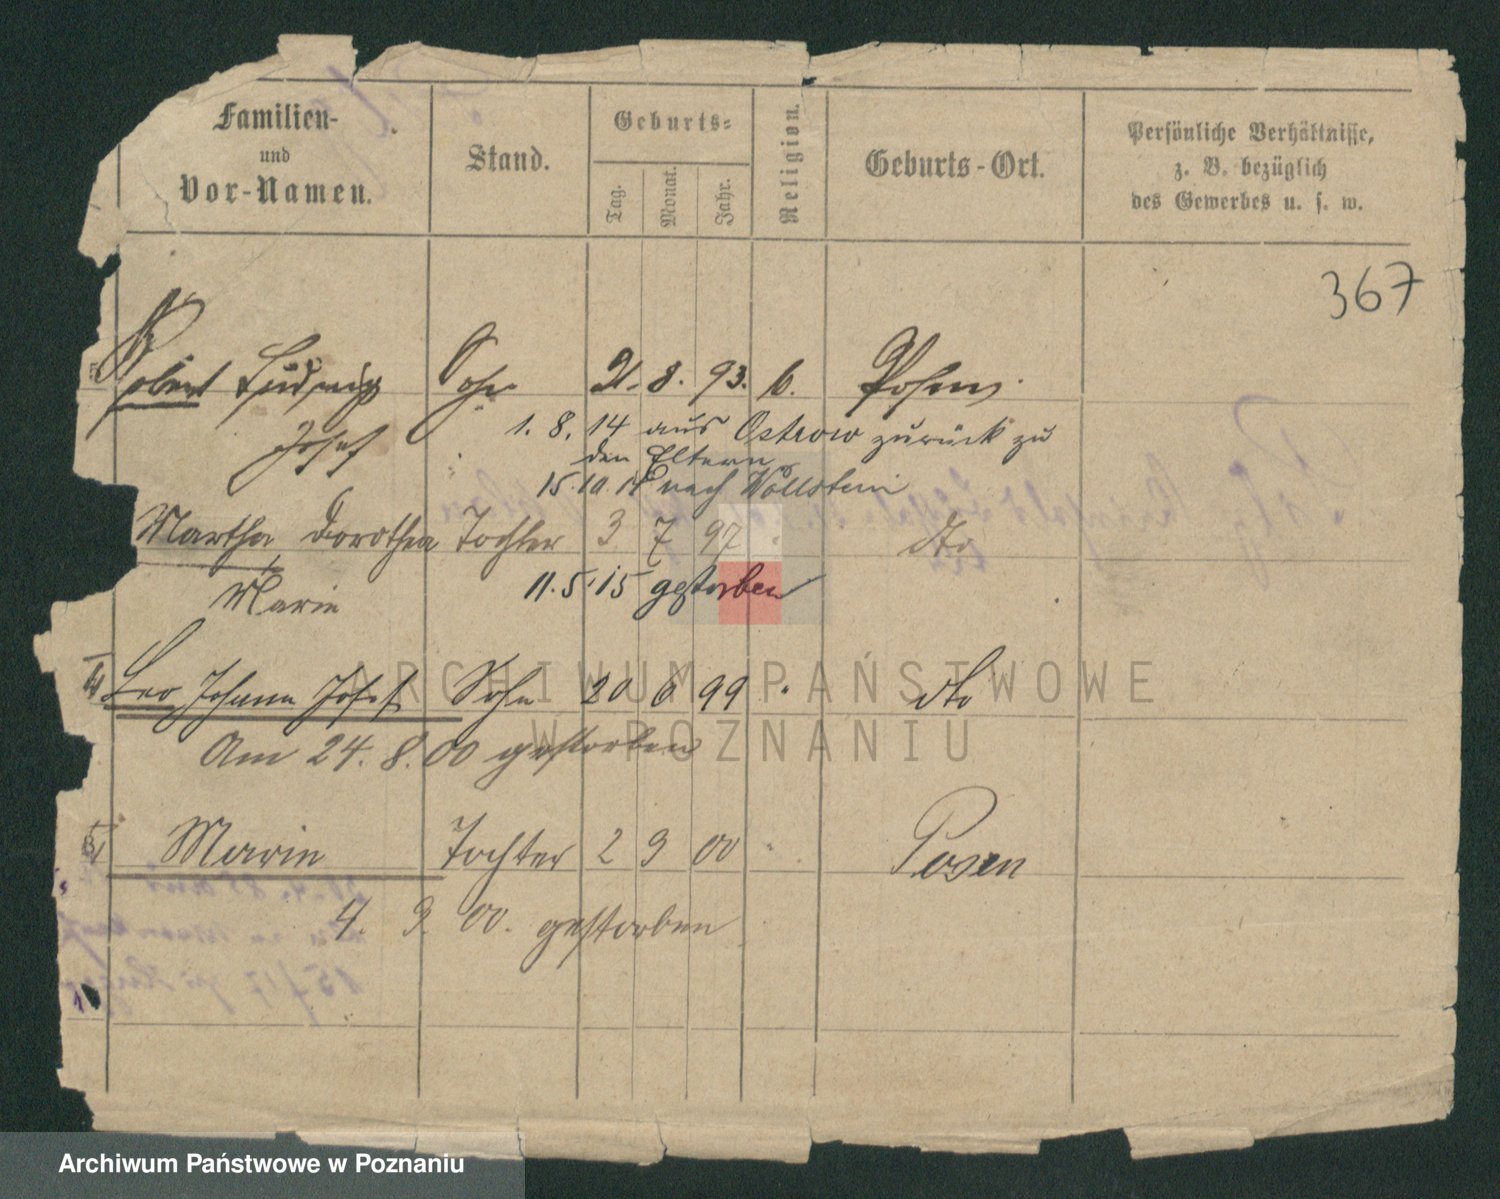 Familien-
und
Vor-Namen.
Stand.
Geburts-
Tag.
Monat.
Jahr.
Religion.
Geburts-Ort.
Persönliche Verhältnisse,
z. B. bezüglich
des Gewerbes u. s. w.
367
Robert Ludwig Sohn 21. 8. 93. k. Posen
Josef
1. 8. 14 aus Ostrow zurück zu
den Eltern
15. 10. 14 nach Wollstein
Martha Dorothea Tochter 3 7 97 " dto
Marie
11. 5. 15 gestorben
Leo Johann Josef Sohn 20 6 99 " dto
Am 24. 8. 00 gestorben
Marie Tochter 2 9 00 " Posen
4. 9. 00. gestorben
ARCHIWUM PAŃSTWOWE
W POZNANIU
Archiwum Państwowe w Poznaniu